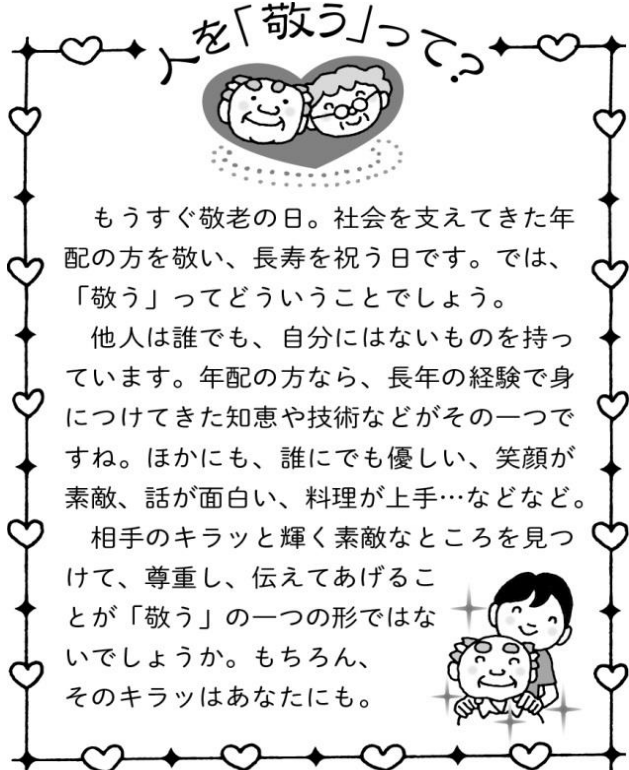 人を「敬う」って?
もうすぐ敬老の日。社会を支えてきた年
配の方を敬い、長寿を祝う日です。では、
「敬う」ってどういうことでしょう。
他人は誰でも、自分にはないものを持っ
ています。年配の方なら、長年の経験で身
につけてきた知恵や技術などがその一つで
すね。ほかにも、誰にでも優しい、笑顔が
素敵、話が面白い、料理が上手…などなど。
相手のキラッと輝く素敵なところを見つ
けて、尊重し、伝えてあげるこ
とが「敬う」の一つの形ではな
いでしょうか。もちろん、
そのキラッはあなたにも。